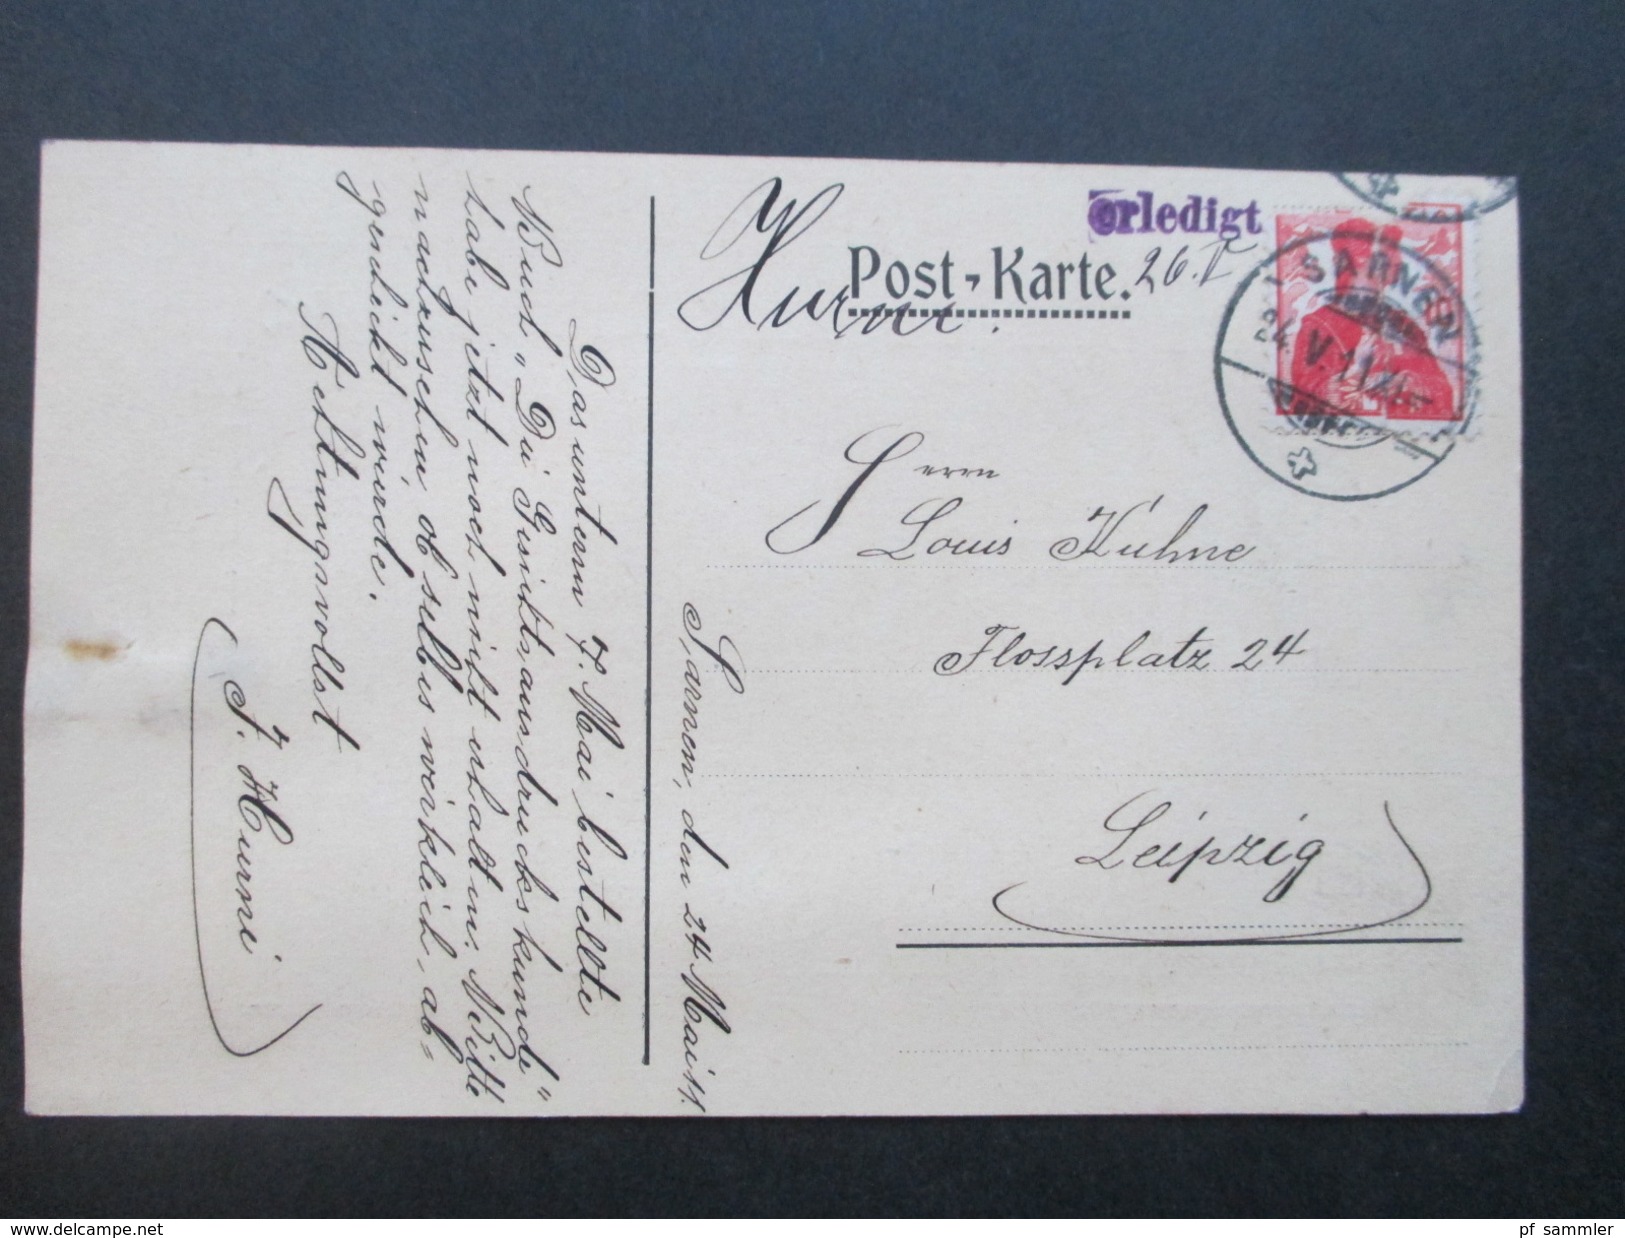 Erledigt
Post-Karte.
26. V
Hurni.
SARNEN
24. V. 11. XI
Herrn
Louis Kühne
Flossplatz 24
Leipzig
Sarnen, den 24 Mai 11.
Das untern 7. Mai bestellte
Buch „Die Gesichtsausdruckskunde"
habe jetzt noch nicht erhalten. Bitte
nachzusehen, ob selbis wirklich ab=
geschickt würde.
Achtungsvollst
J. Hurni
www.delcampe.net
pf_sammler